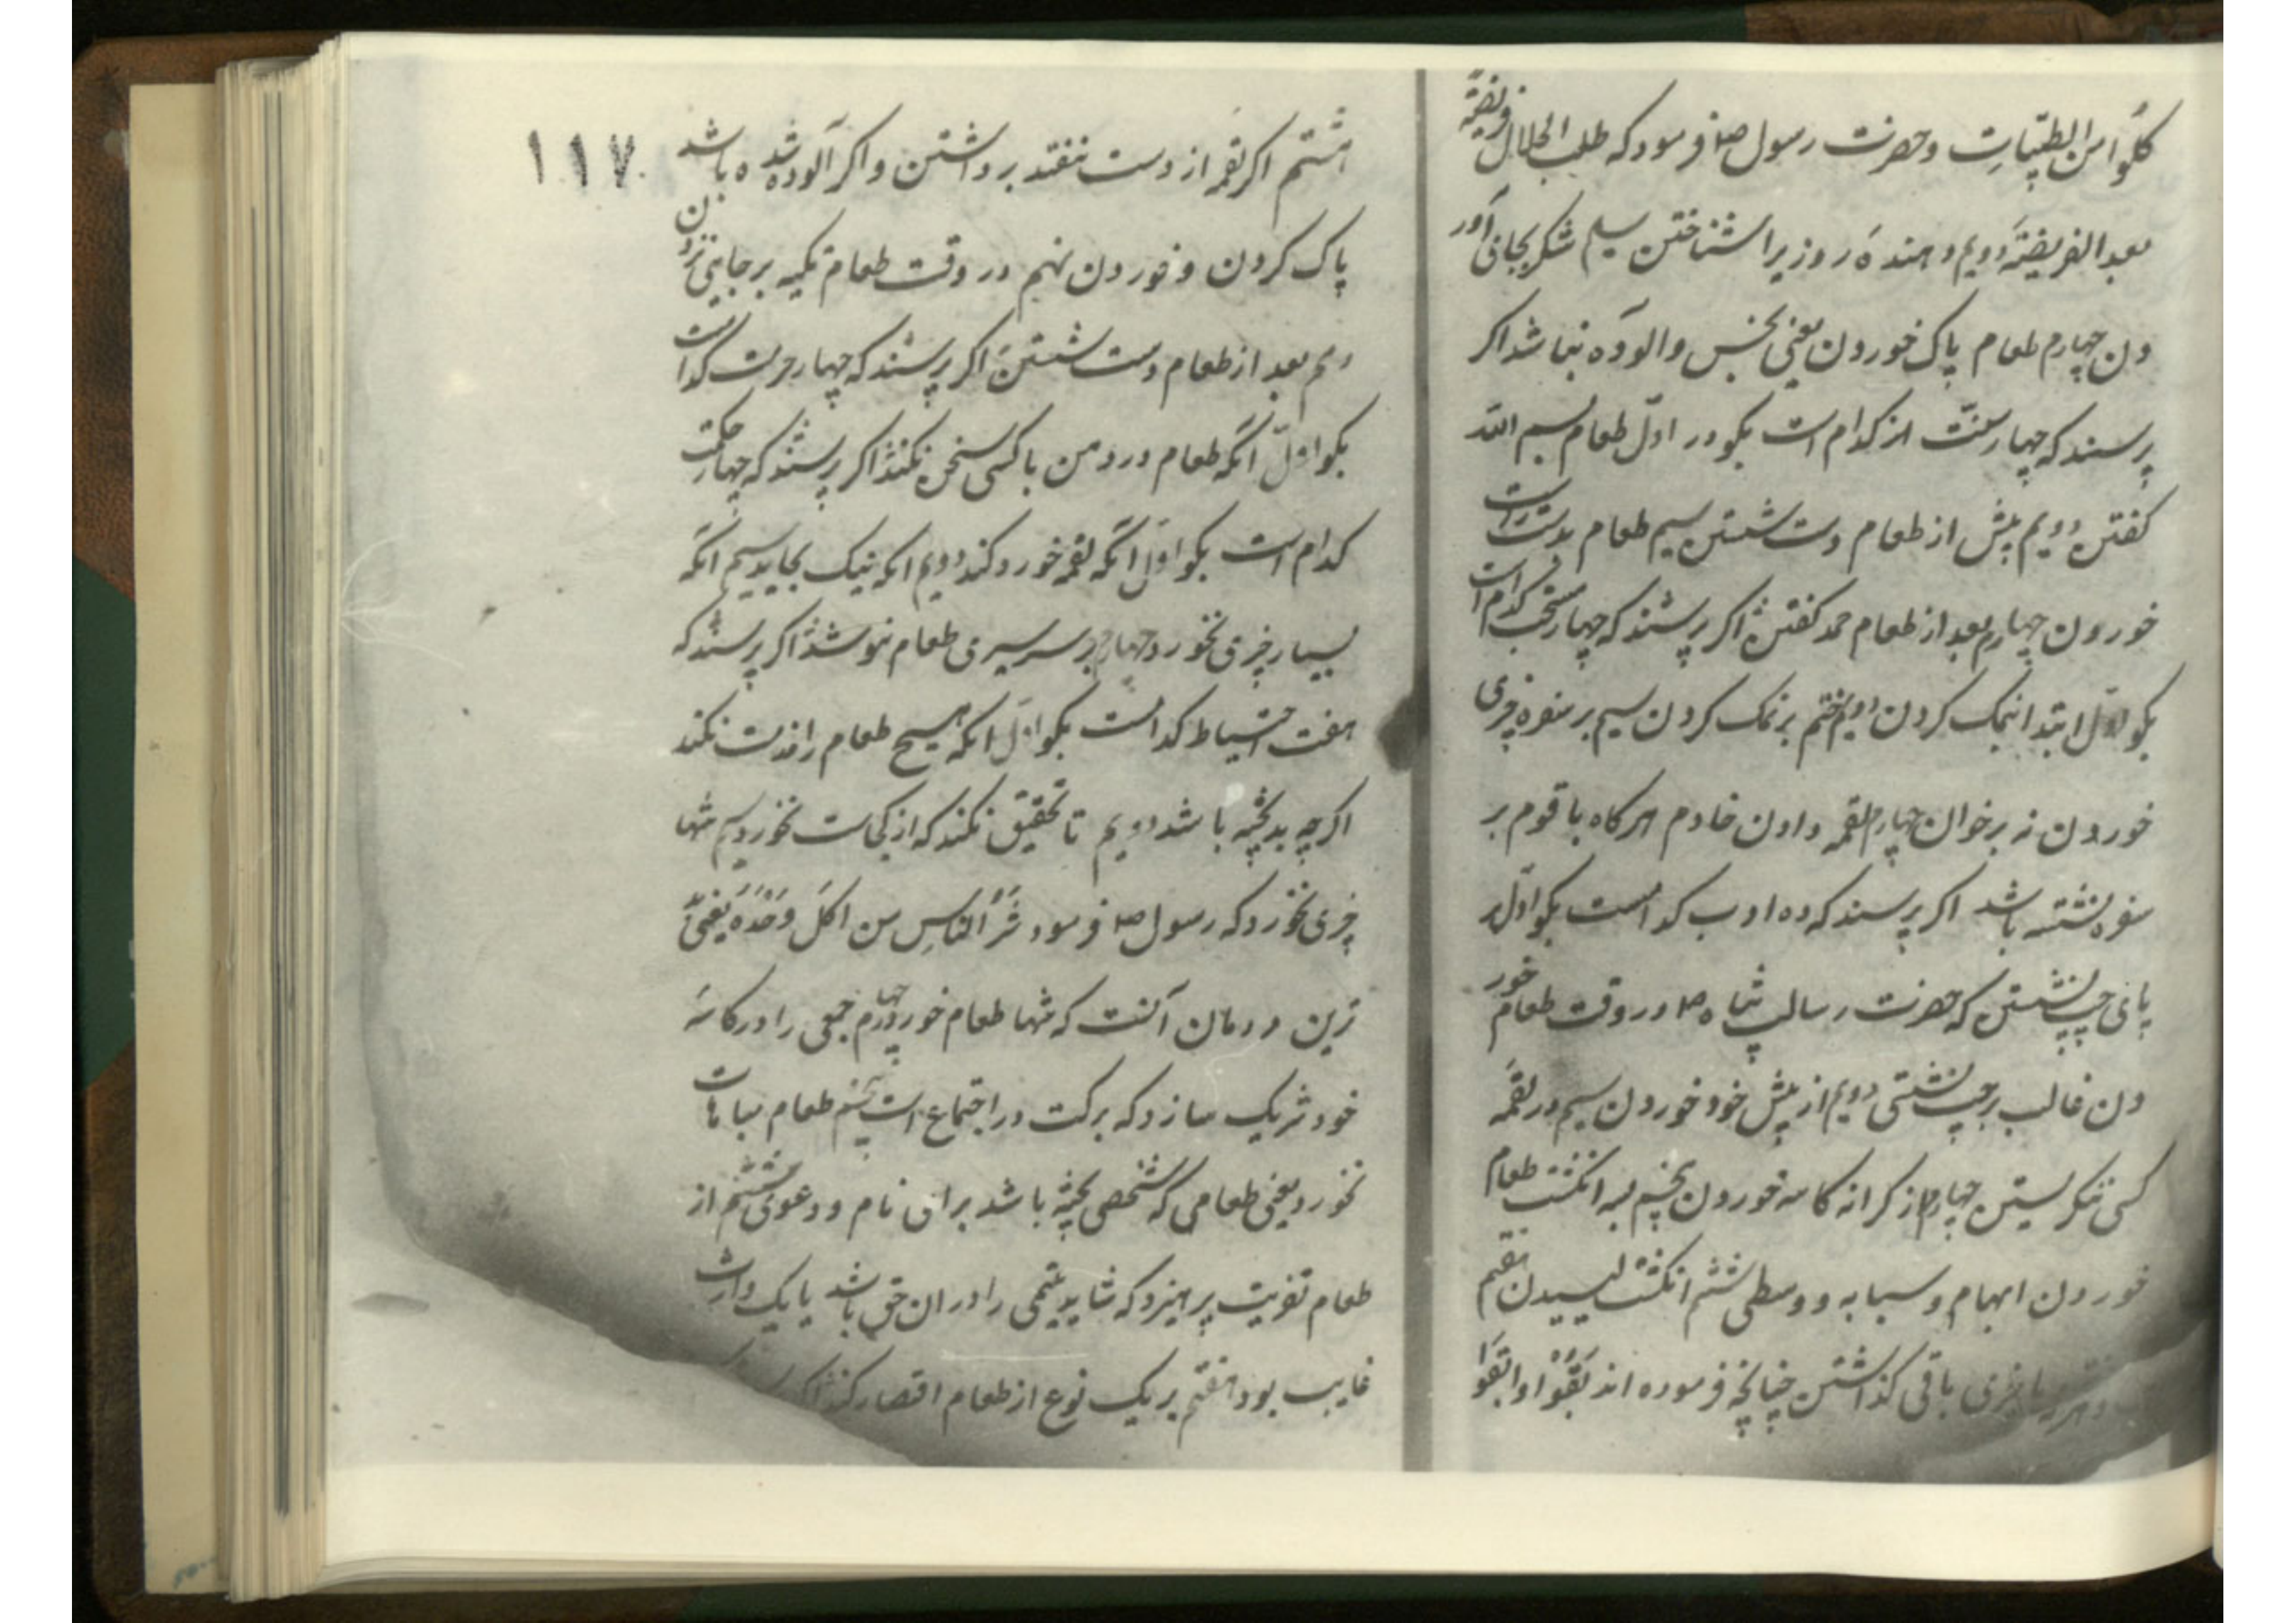 کُلُوا من الطیّباتِ وحضرت رسول ص فرمود که طلب الحلال فریضة
بعد الفریضة دویم دهندهٔ روزیرا شناختن سیم شکر بجای آور
دن چهارم طعام پاک خوردن یعنی نجس والوده نباشد اکر
پرسند که چهار سنّت کدام است بکو در اوّل طعام بسم الله
کفتن دویم پیش از طعام دست شستن سیم طعام بدست راست
خوردن چهارم بعد از طعام حمد کفتن اکر پرسند که چهار مستحب کدام است
بکو اوّل ابتدا بنمک کردن دویم ختم بر نمک کردن سیم بر سفره چیزی
خوردن نه بر خوان چهارم لقمه دادن خادم هرکاه با قوم بر
سفره نشسته باشد اکر پرسند که ده ادب کدامست بکو اوّل بر
پای چپ نشستن که حضرت رسالت پناه ص در وقت طعام خور
دن غالب بر چپ نشستی دویم از پیش خود خوردن سیم در لقمهٔ
کسی ننکریستن چهارم از کرانه کاسه خوردن پنجم بسه انکشت طعام
خوردن ابهام و سبابه و وسطی ششم انکشت لیسیدن هفتم
چیزی باقی کذاشتن چنانچه فرموده اند بَقُّوا وابقوا
۱۱۷
هشتم اکر لقمه از دست بیفتد برداشتن واکر آلوده شده باشد
پاک کردن وخوردن نهم در وقت طعام تکیه بر جایی نزدن
دهم بعد از طعام دست شستن اکر پرسند که چهار حرمت کدامست
بکو اوّل آنکه طعام در دهن با کسی سخن نکند اکر پرسند که چهار حکمت
کدام است بکو اوّل آنکه لقمه خورد کند دویم آنکه نیک بخاید سیم آنکه
بسیار چیزی نخورد چهارم بر سر سیری طعام ننوشد اکر پرسند که
هفت احتیاط کدامست بکو اوّل آنکه هیچ طعام را مذمت نکند
اکرچه بد پخته باشد دویم تا تحقیق نکند که از کجاست نخورد سیم تنها
چیزی نخورد که رسول ص فرمود شَرُّ النّاسِ من اکَلَ وَحْدَهُ یعنی بد
ترین مردمان آنست که تنها طعام خورد چهارم جمعی را در کاسهٔ
خود شریک سازد که برکت در اجتماع است پنجم طعام مباهات
نخورد یعنی طعامی که شخصی پخته باشد برای نام ودعوی ششم از
طعام تعزیت پرهیزد که شاید یتیمی را در ان حق باشد یا یک وارث
غایب بود هفتم بر یک نوع از طعام اقتصار کند اکر